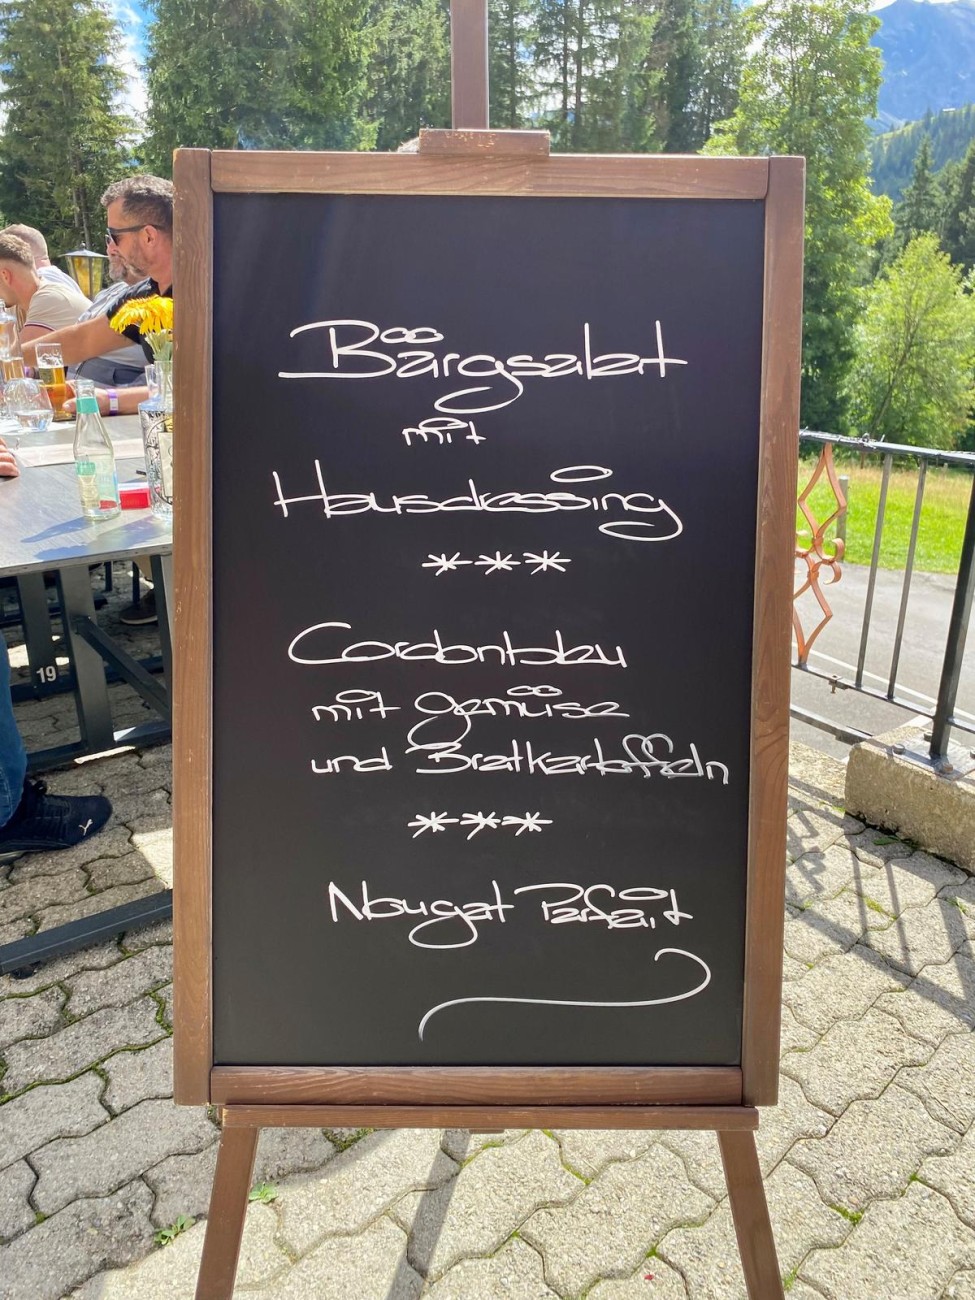 Bärgsalat
mit
Hausdressing
***
Cordonbleu
mit Gemüse
und Bratkartoffeln
***
Nougat Parfait
19